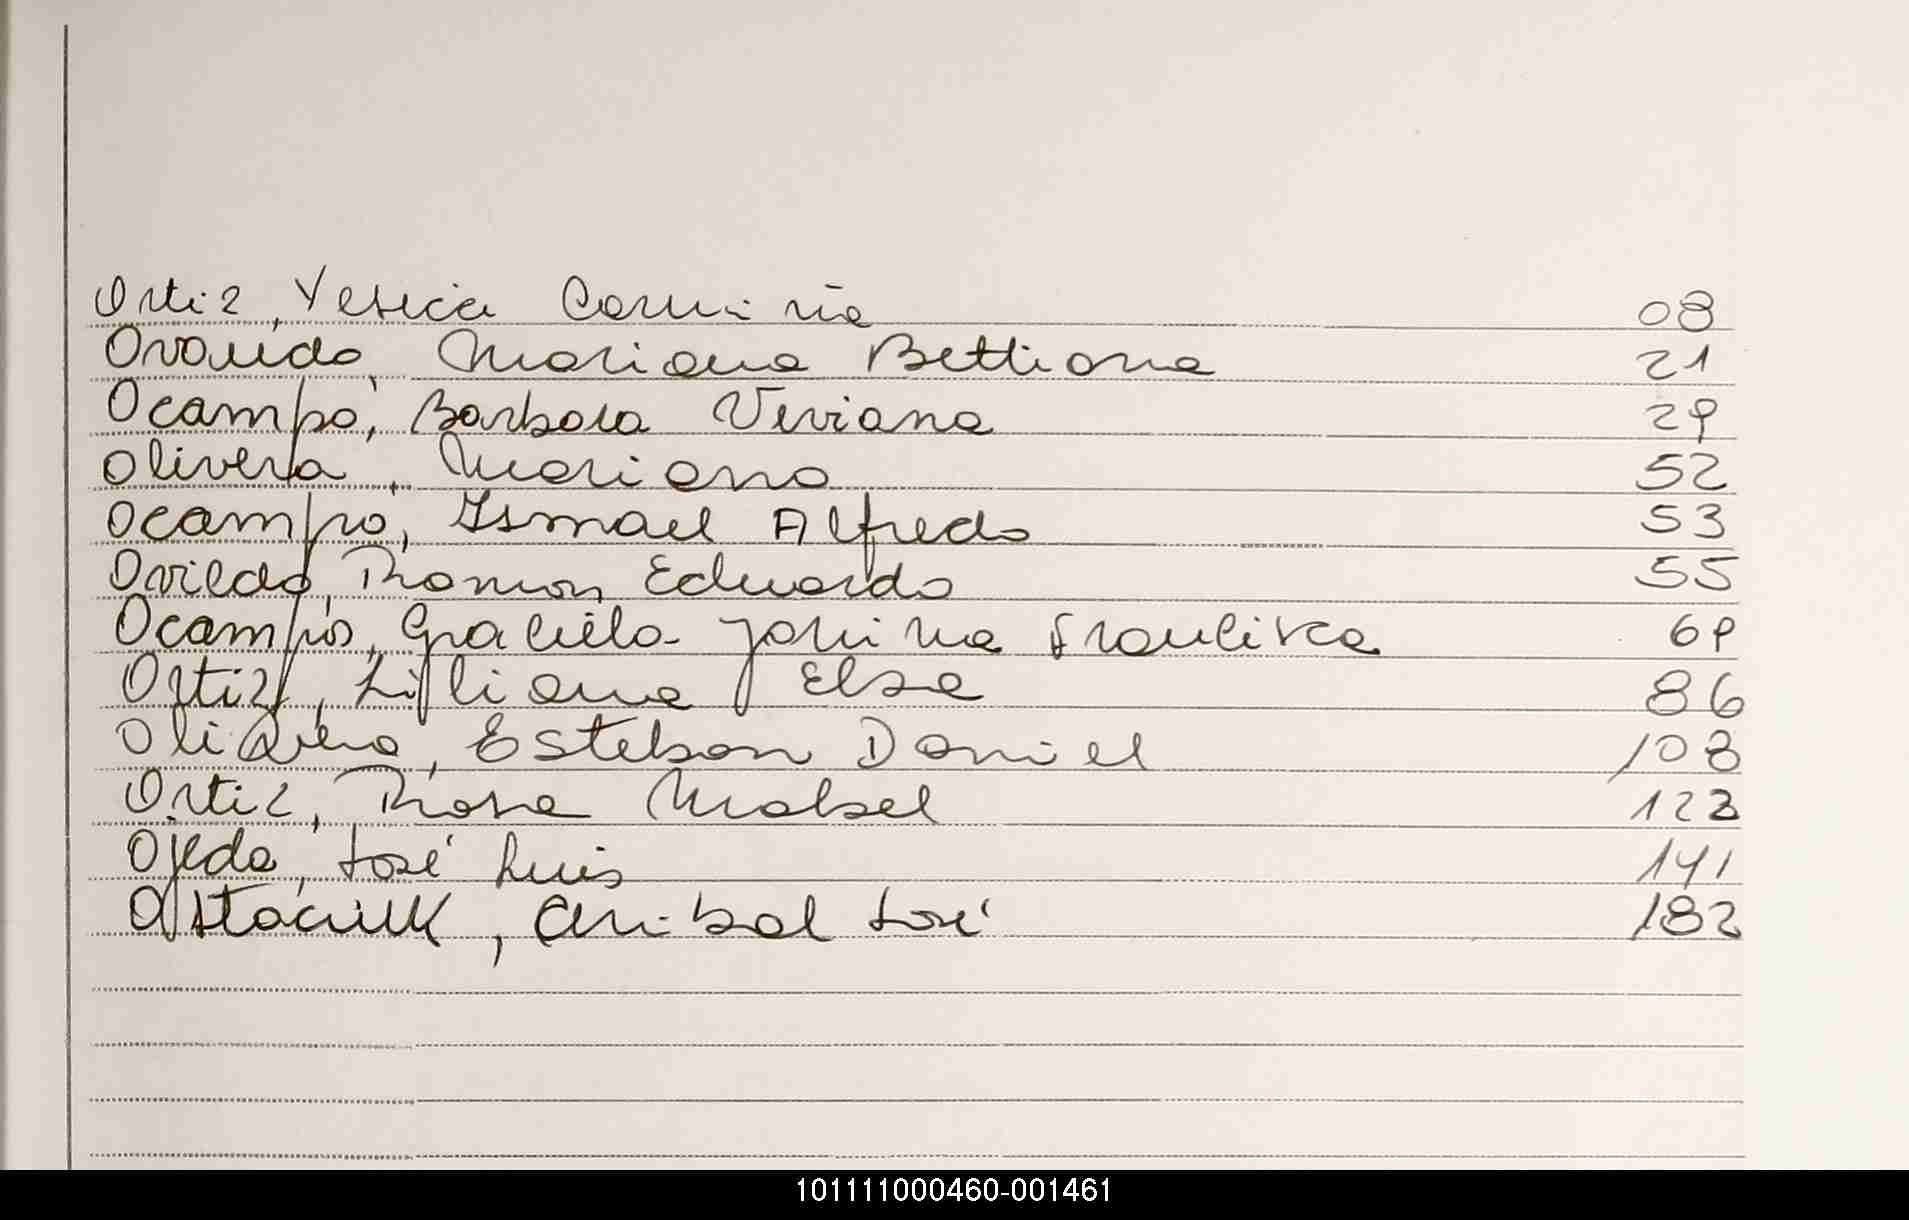 Ortiz, Yesica Carmiña 08
Ovando, Mariana Bettiana 21
Ocampo, Barbara Viviana 29
Olivera, Mariano 52
Ocampo, Ismael Alfredo 53
Oviedo, Ramon Eduardo 55
Ocampo, Graciela Yanina Franlisca 69
Ortiz, Liliana Elsa 86
Esteban Daniel 108
Ortiz, Rosa Mabel 122
Ojeda, José Luis 141
Anibal José 182
101111000460-001461